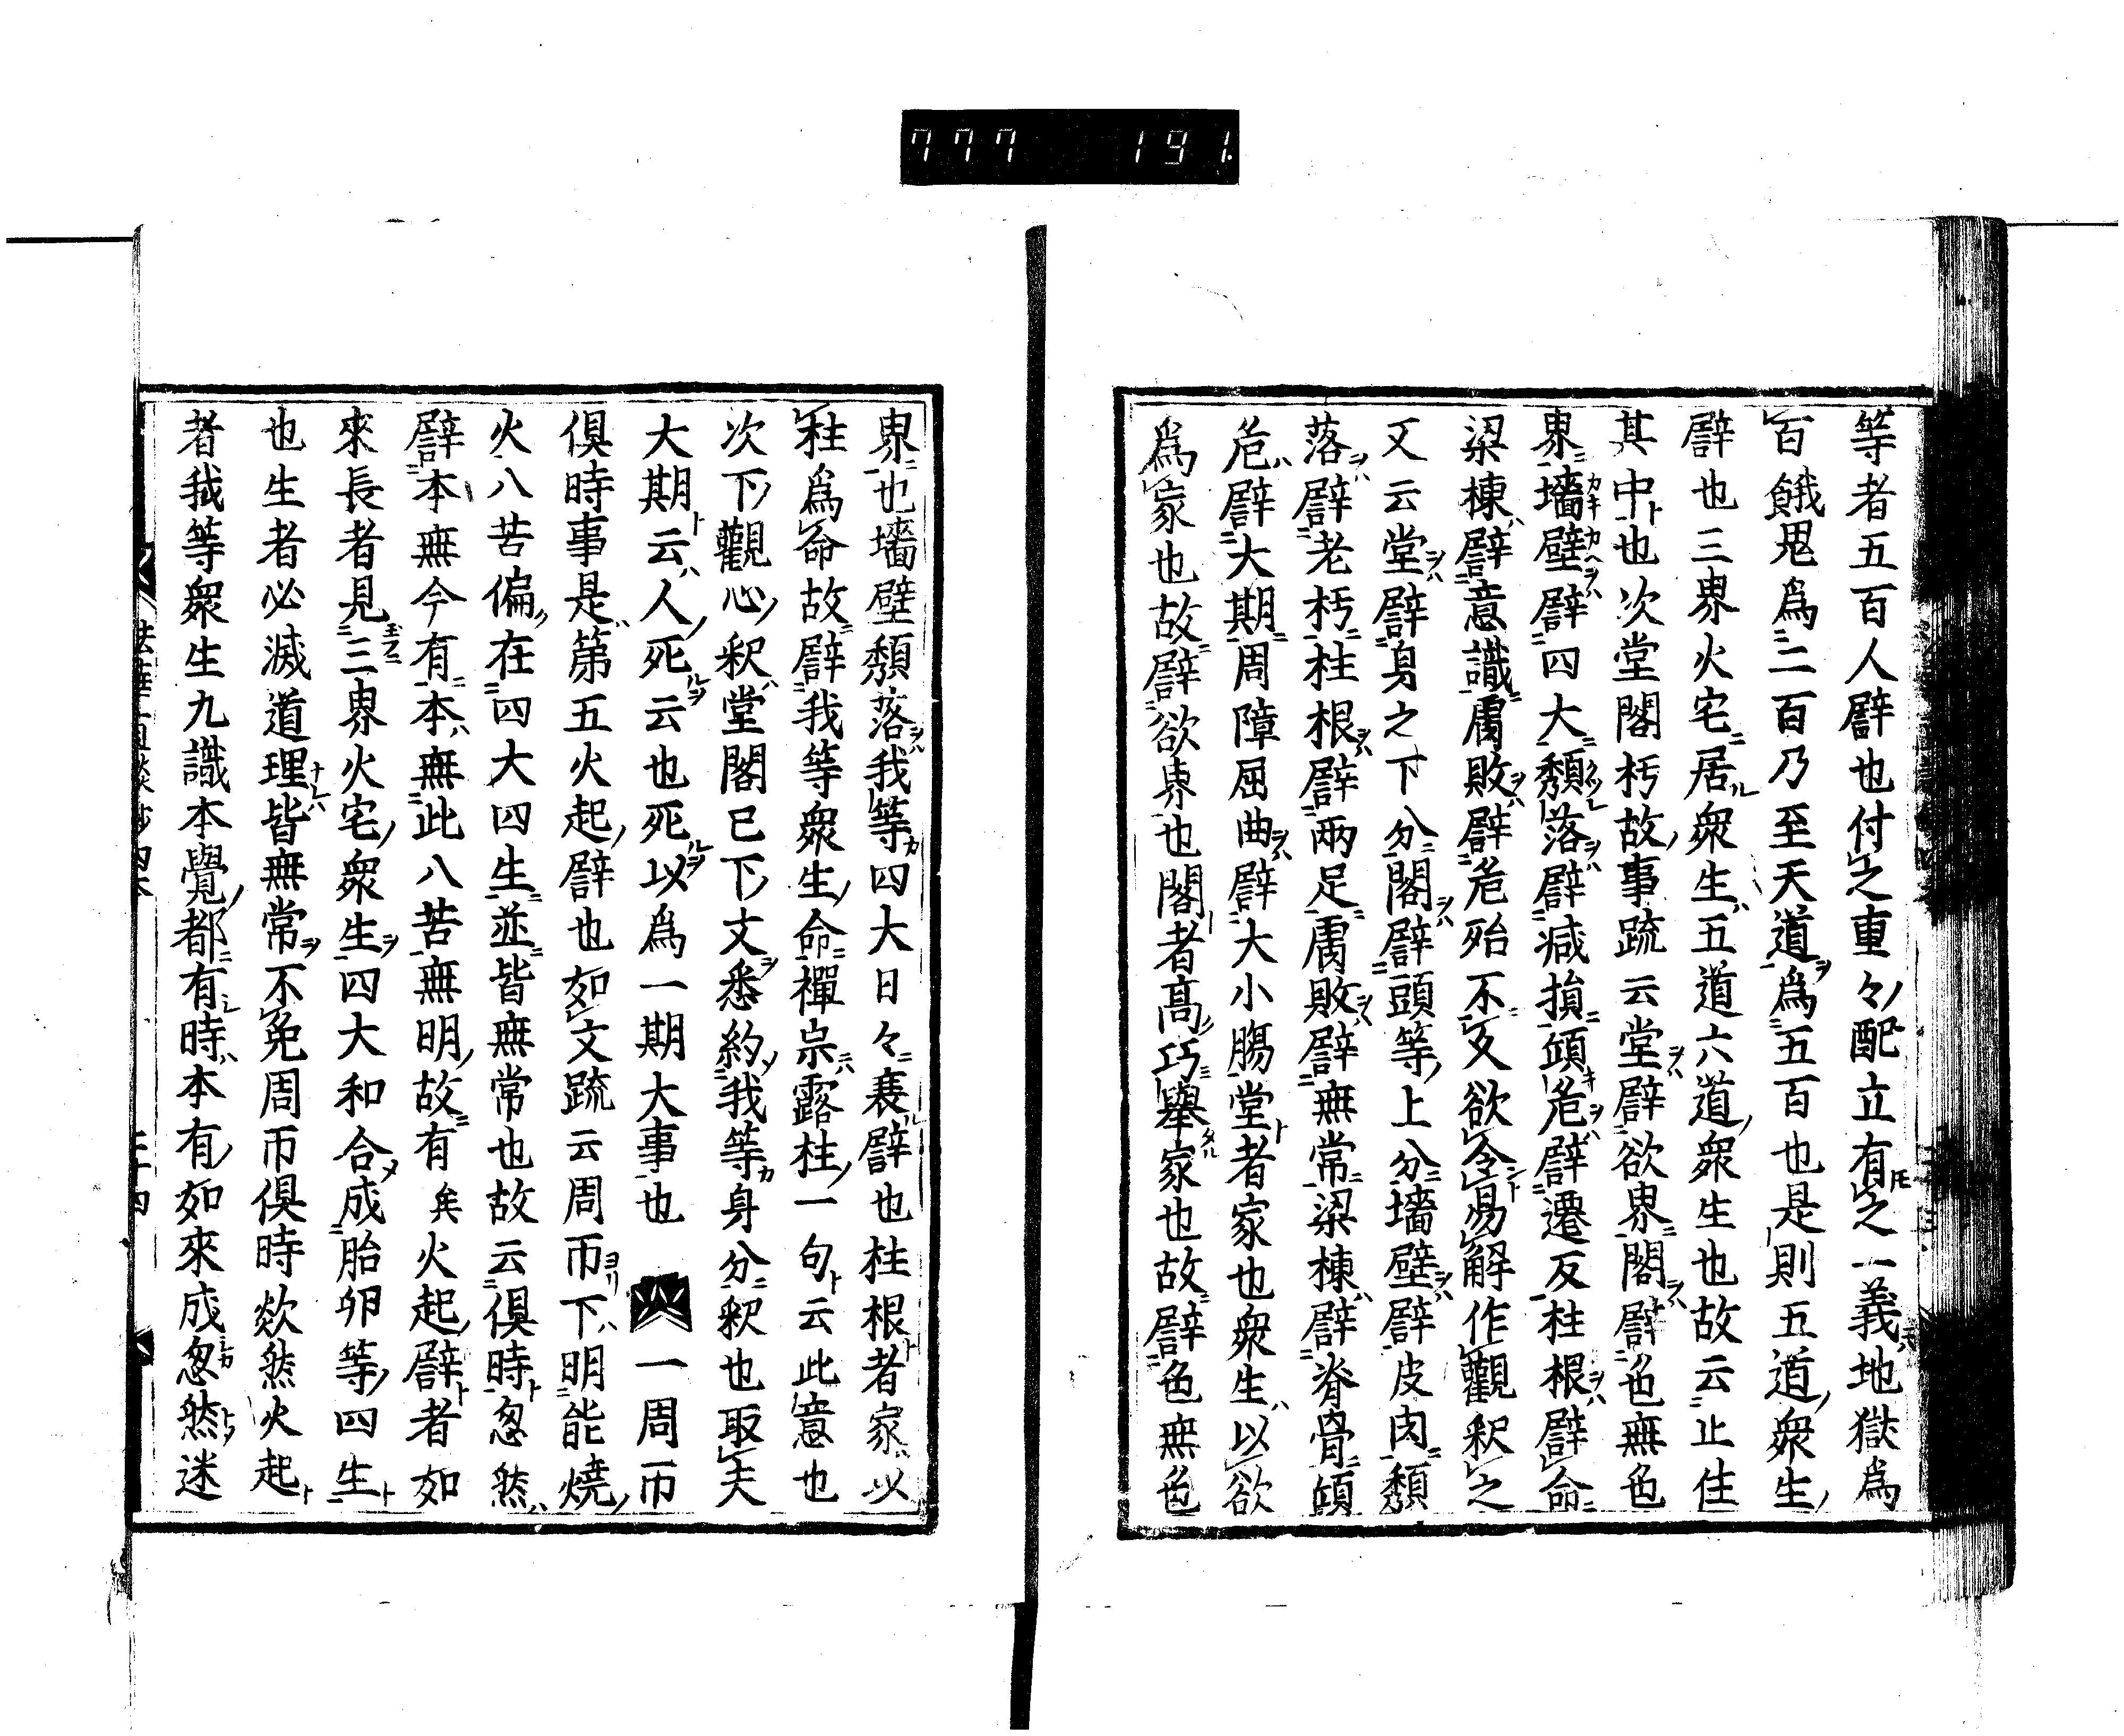 777 191.
等者五百人譬也付之重々配立有之一義地獄爲
百餓鬼爲二百乃至天道爲五百也是則五道衆生
譬也三界火宅居衆生五道六道衆生也故云止住
其中也次堂閣朽故事疏云堂譬欲界閣譬色無色
界墻壁譬四大頽落譬減損傾危譬遷反柱根譬命
梁棟譬意識腐敗譬危殆不及欲令易解作觀釈之
又云堂譬身之下分閣譬頭等上分墻壁譬皮肉頽
落譬老朽柱根譬兩足腐敗譬無常梁棟譬脊骨傾
危譬大期周障屈曲譬大小腸堂者家也衆生以欲
爲家也故譬欲界也閣者高巧擧家也故譬色無色
界也墻壁頽落我等四大日々衰譬也柱根者家以
柱爲命故譬我等衆生命禪宗露柱一句云此意也
次下觀心釈堂閣已下文悉約我等身分釈也取夫
大期云人死云也死以爲一期大事也 一周帀
倶時事是第五火起譬也如文疏云周帀下明能燒
火八苦偏在四大四生並皆無常也故云倶時忽然
譬本無今有本無此八苦無明故有矣火起譬者如
來長者見三界火宅衆生四大和合成胎卵等四生
也生者必滅道理皆無常不免周帀倶時欻然火起
者我等衆生九識本覺都有時本有如來成忽然迷